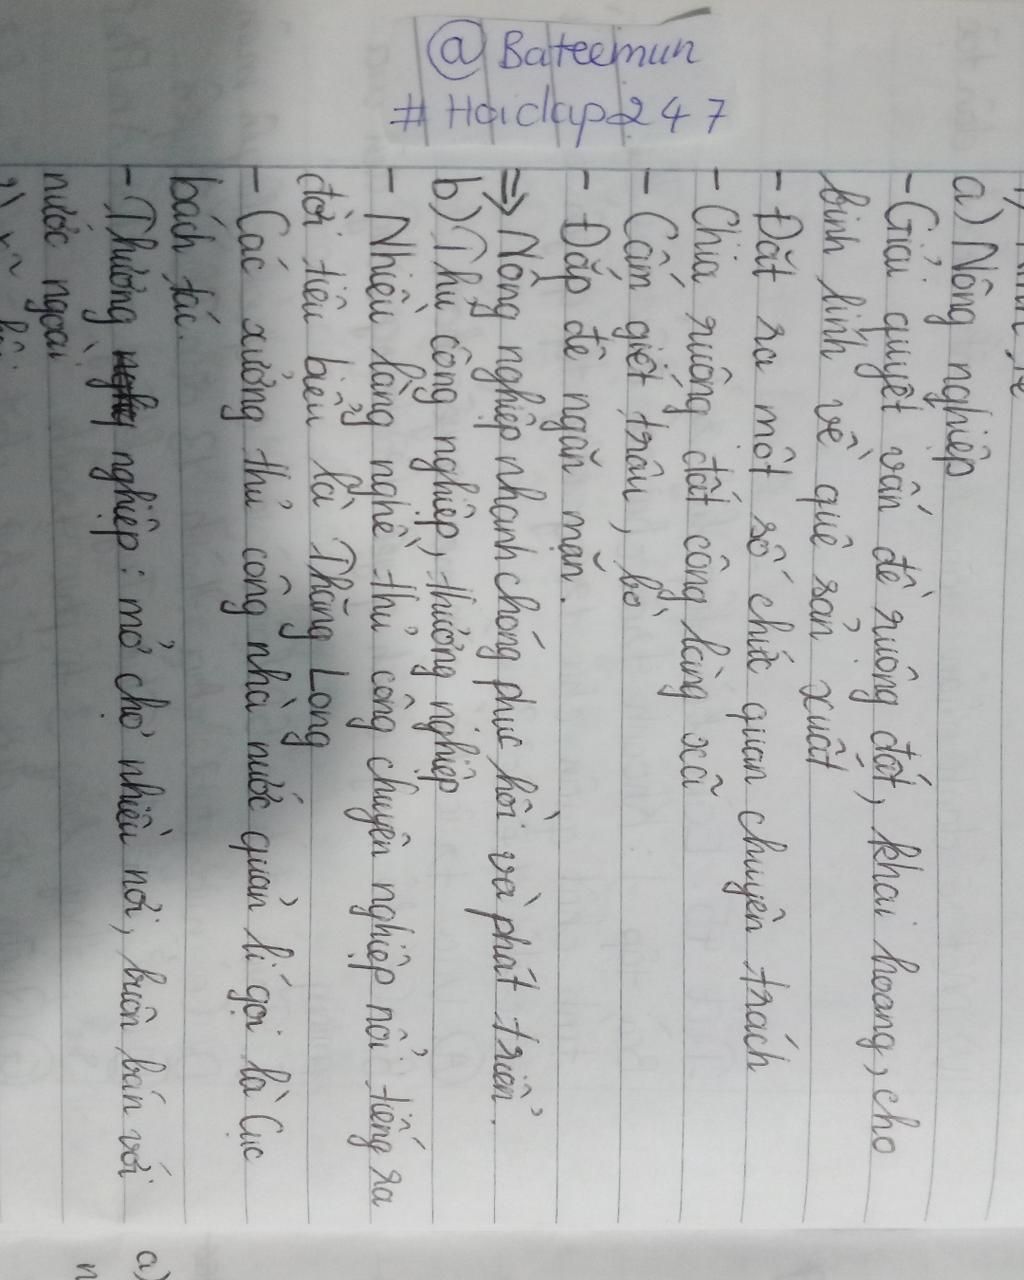 @ Bateemun
# Hoidap247
a) Nông nghiệp
- Giải quyết vấn đề ruộng đất, khai hoang, cho
binh lính về quê sản xuất
- Đặt ra một số chức quan chuyên trách
- Chia ruộng đất công làng xã
- Cấm giết trâu, bò
- Đắp đê ngăn mặn.
⇒ Nông nghiệp nhanh chóng phục hồi và phát triển.
b) Thủ công nghiệp, thương nghiệp
- Nhiều làng nghề thủ công chuyên nghiệp nổi tiếng ra
đời tiêu biểu là Thăng Long
- Các xưởng thủ công nhà nước quản lí gọi là Cục
bách tác.
- Thương nghiệp: mở chợ nhiều nơi, buôn bán với
nước ngoài
a)